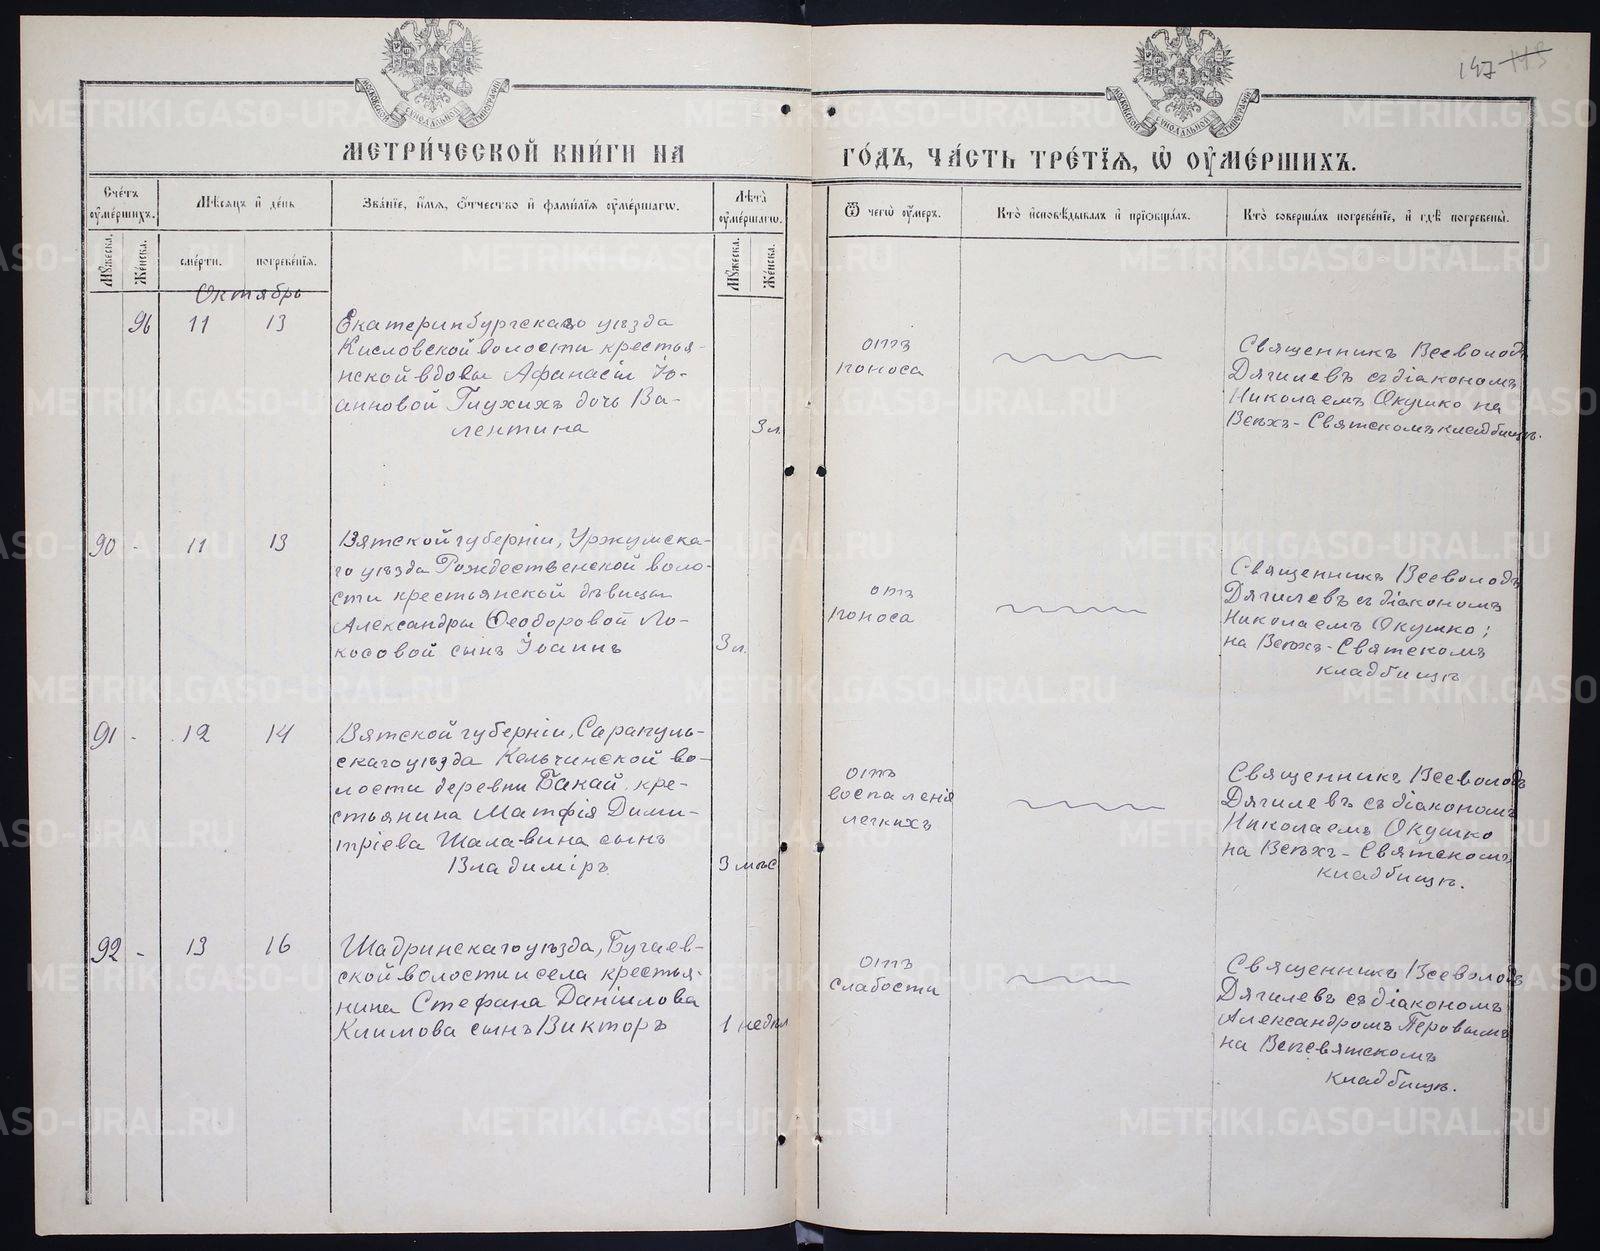 147 118
МЕТРИ́ЧЕСКОЙ КНИ́ГИ НА
ГО́ДЪ, ЧА́СТЬ ТРЕ́ТІЯ, Ѡ ОУМЕ́РШИХЪ.
Сче́тъ оуме́ршихъ.
Мѣсяцъ и де́нь
Зва́ніе, и́мя, о́тчество и фами́лія оуме́ршагѡ.
Лѣта̀ оуме́ршагѡ.
Ѿ чегѡ̀ оу́меръ.
Кто̀ исповѣ́дывалъ и пріобща́лъ.
Кто̀ соверша́лъ погребе́ніе, и гдѣ̀ погребены̀.
Му́жеска.
Же́нска.
сме́рти.
погребе́нія.
Му́жеска.
Же́нска.
Октябрь
96 11 13
Екатеринбургскаго уѣзда
Кисловской волости крестья-
нской вдовы Афанасіи Іо-
анновой Глухихъ дочь Ва-
лентина
3 л.
отъ
поноса
Священникъ Всеволодъ
Дягилевъ съ діакономъ
Николаемъ Окушко на
Всѣхъ-Святскомъ кладбищѣ.
90 - 11 13
Вятской губерніи, Уржумска-
го уѣзда Рождественской воло-
сти крестьянской дѣвицы
Александры Ѳеодоровой Ло-
косовой сынъ Іоаннъ
3 л.
отъ
поноса
Священникъ Всеволодъ
Дягилевъ съ діакономъ
Николаемъ Окушко;
на Всѣхъ-Святскомъ
кладбищѣ
91 - 12 14
Вятской губерніи, Сарапуль-
скаго уѣзда Кельчинской во-
лости деревни Бакай, кре-
стьянина Матфія Дими-
тріева Шалавина сынъ
Владиміръ
3 мѣс
отъ
воспаленія
легкихъ
Священникъ Всеволодъ
Дягилевъ съ діакономъ
Николаемъ Окушко
на Всѣхъ-Святскомъ
кладбищѣ.
92 - 13 16
Шадринскаго уѣзда, Бугаев-
ской волости и села крестья-
нина Стефана Даніилова
Климова сынъ Викторъ
1 недѣл
отъ
слабости
Священникъ Всеволодъ
Дягилевъ съ діакономъ
Александромъ Перовымъ
на Всѣсвятскомъ
кладбищѣ.